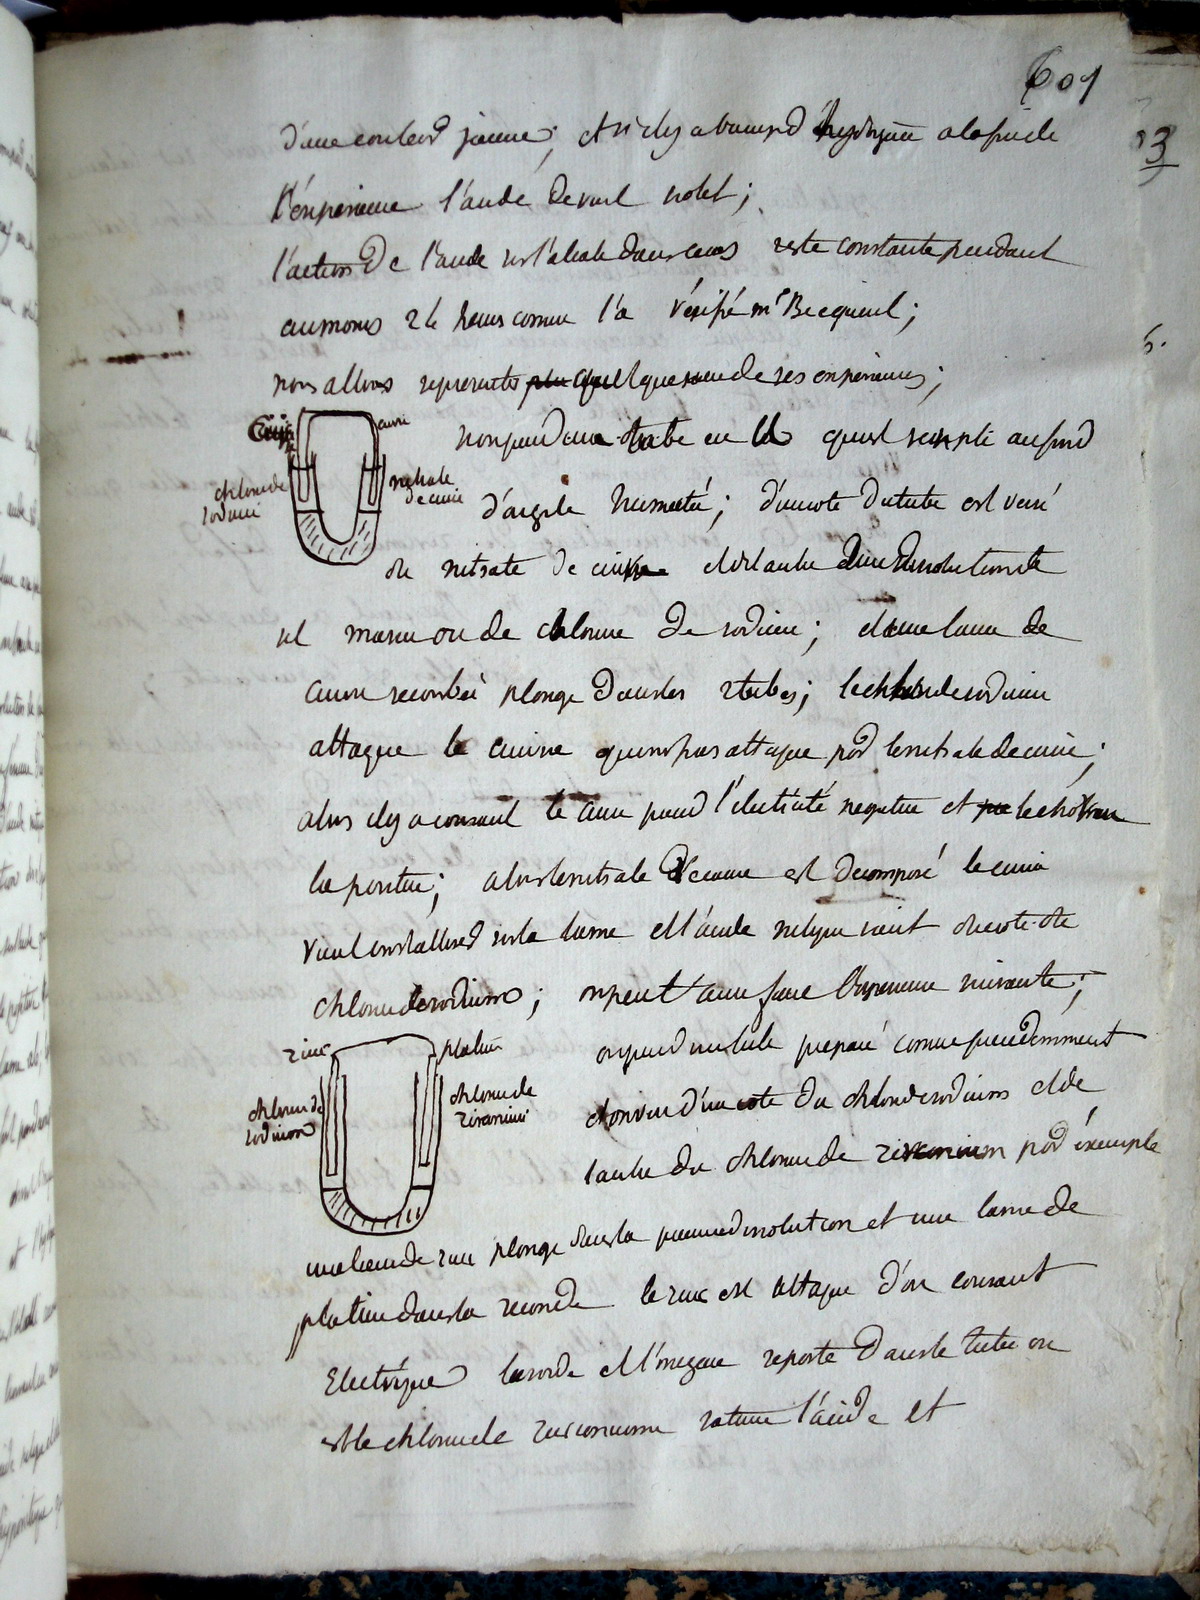 601
d'une couleur jaune; et si il y a
l'expérience l'acide devient violet;
l'action de l'acide sur l'alcali dans ce cas reste constante pendant
au moins 24 heures comme l'a vérifié mr Becquerel;
nous allons representer quelques unes de ses expériences;
cuivre
on prend un tube en U qu'on remplit au fond
chlorure de
sodium
nitrate
de cuivre
d'argile humecté; d'un coté du tube est versé
du nitrate de cuivre et de l'autre une dissolution de
sel marin ou de chlorure de sodium; et une lame de
cuivre recourbée plonge dans les 2 tubes; le chlorure de sodium
attaque le cuivre qui n'est pas attaqué par le nitrate de cuivre;
alors il y a courant le cuivre prend l'électricité negative et
la positive; alors le nitrate de cuivre est decomposé le cuivre
vient s'installer sur la lame et l'acide nitrique vient du coté du
chlorure de sodium; on peut aussi faire l'expérience suivante;
zinc
platine
on prend un tube préparé comme precedemment
chlorure de
sodium
chlorure de
zirconium
et on verse d'un coté du chlorure de sodium et de
l'autre du chlorure de zirconium par exemple
une lame de zinc plonge dans la premiere dissolution et une lame de
platine dans la seconde le zinc est attaqué d'où courant
Electrique la soude et l'oxigene reporté dans le tube ou
est le chlorure de zirconium sature l'acide et